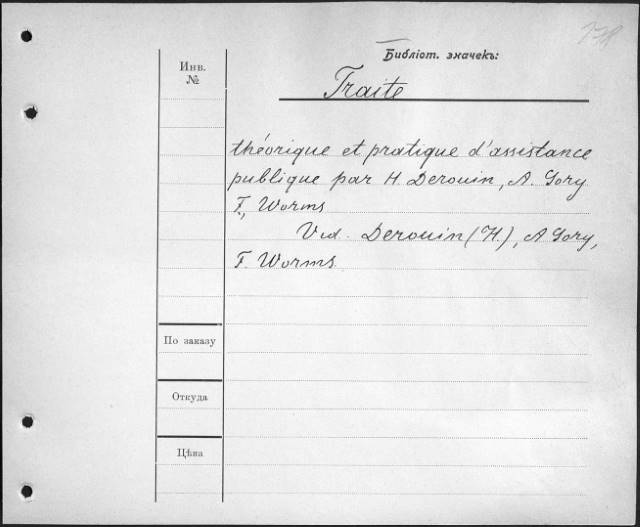 Библіот. значекъ:
Инв.
№
Traite
théorique et pratique d'assistance
publique par H. Derouin, A. Gory
F., Worms
Vid. Derouin (H.), A Gory,
F. Worms
По заказу
Откуда
Цѣна